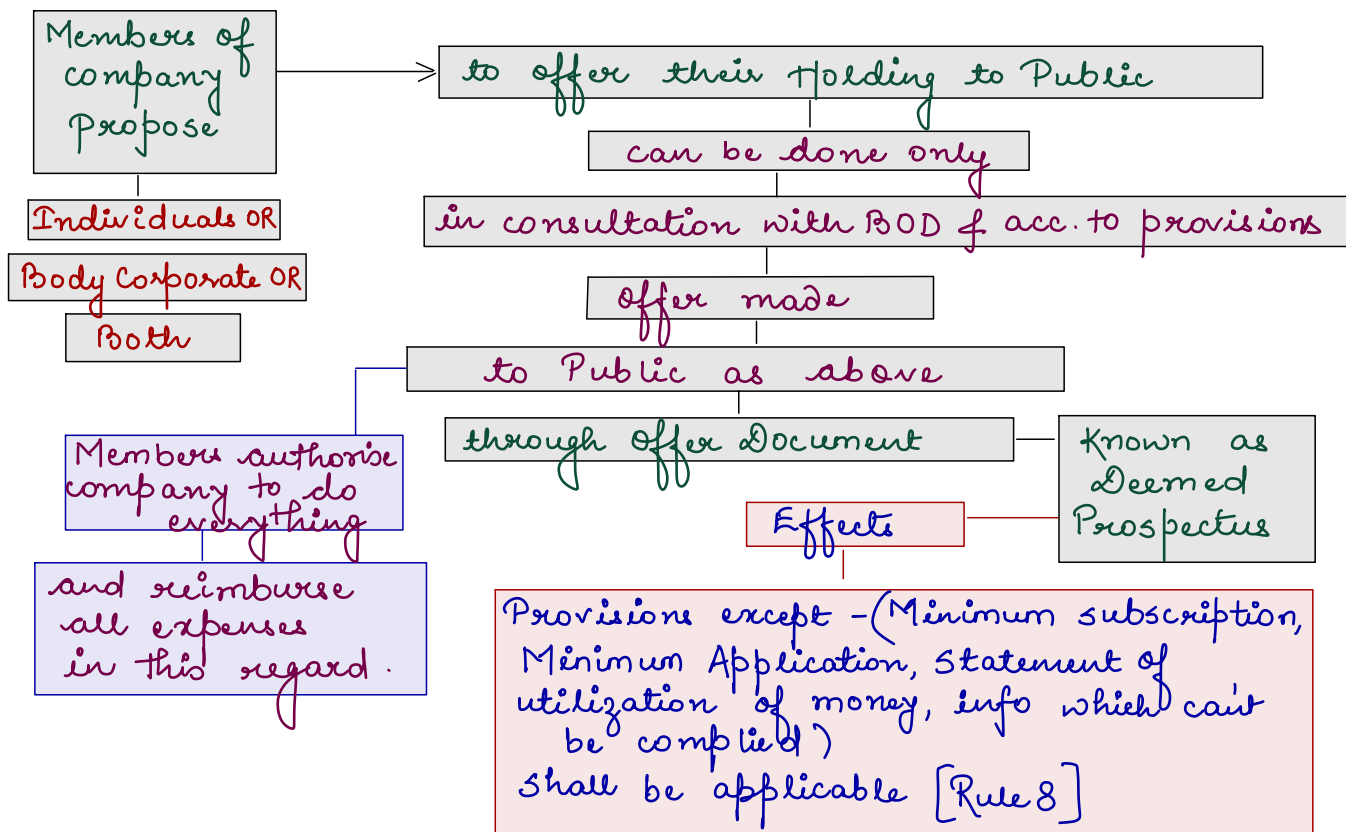 Members of
company
Propose
to offer their Holding to Public
can be done only
Individuals OR
in consultation with BOD & acc. to provisions
Body Corporate OR
offer made
Both
to Public as above
through Offer Document
Known as
Deemed
Prospectus
Members authorise
company to do
everything
Effects
and reimburse
all expenses
in this regard.
Provisions except - (Minimum subscription,
Minimum Application, Statement of
utilization of money, info which can't
be complied)
shall be applicable [Rule 8]